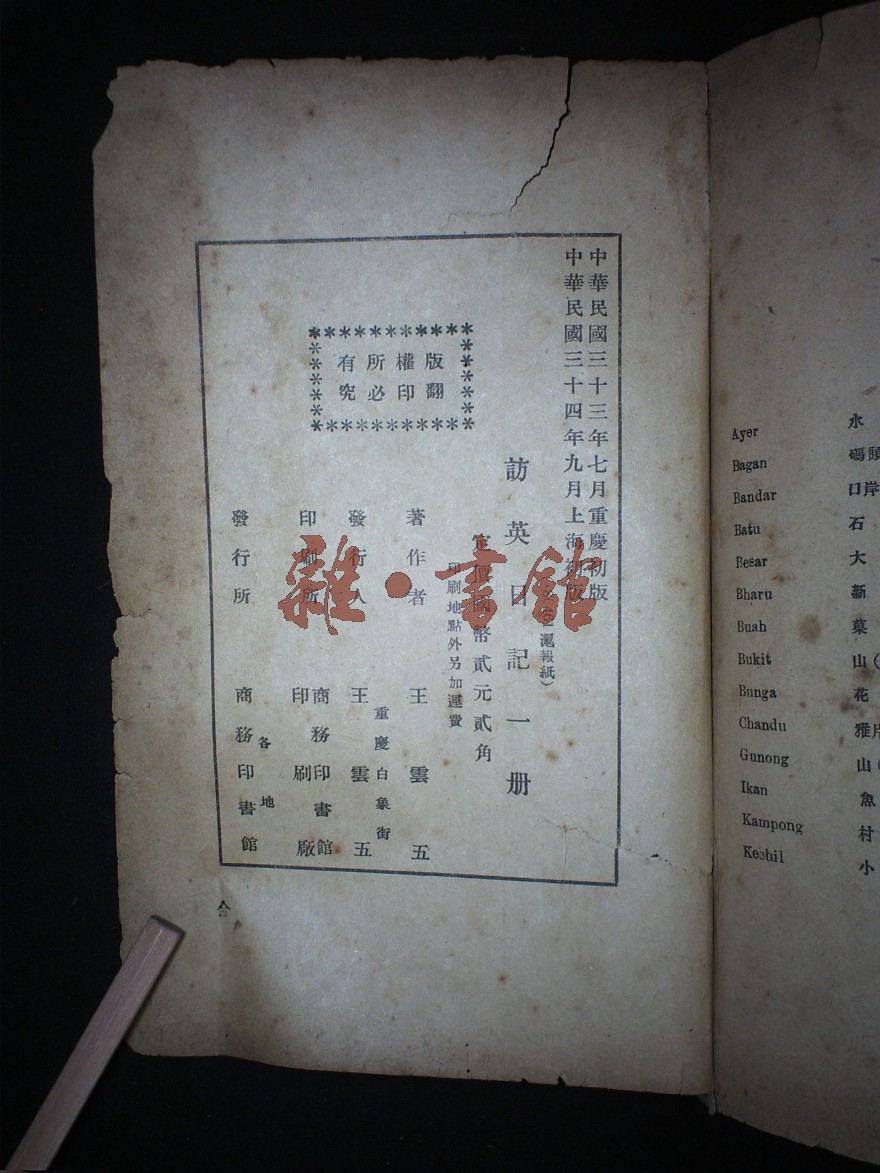 中華民國三十三年七月重慶初版
中華民國三十四年九月上海初版
滬報紙)
訪英日記一册
定價國幣貳元貳角
印刷地點外另加運費
版權所有
翻印必究
著作者 王雲五
重慶白象街
發行人 王雲五
印刷所 商務印書館印刷廠
各地
發行所 商務印書館
雜·書館
Ayer 水
Bagan 碼頭
Bandar 口岸
Batu 石
Besar 大
Bharu 新
Buah 菓
Bukit 山(
Bunga 花
Chandu 雅片
Gunong 山(
Ikan 魚
Kampong 村
Kechil 小